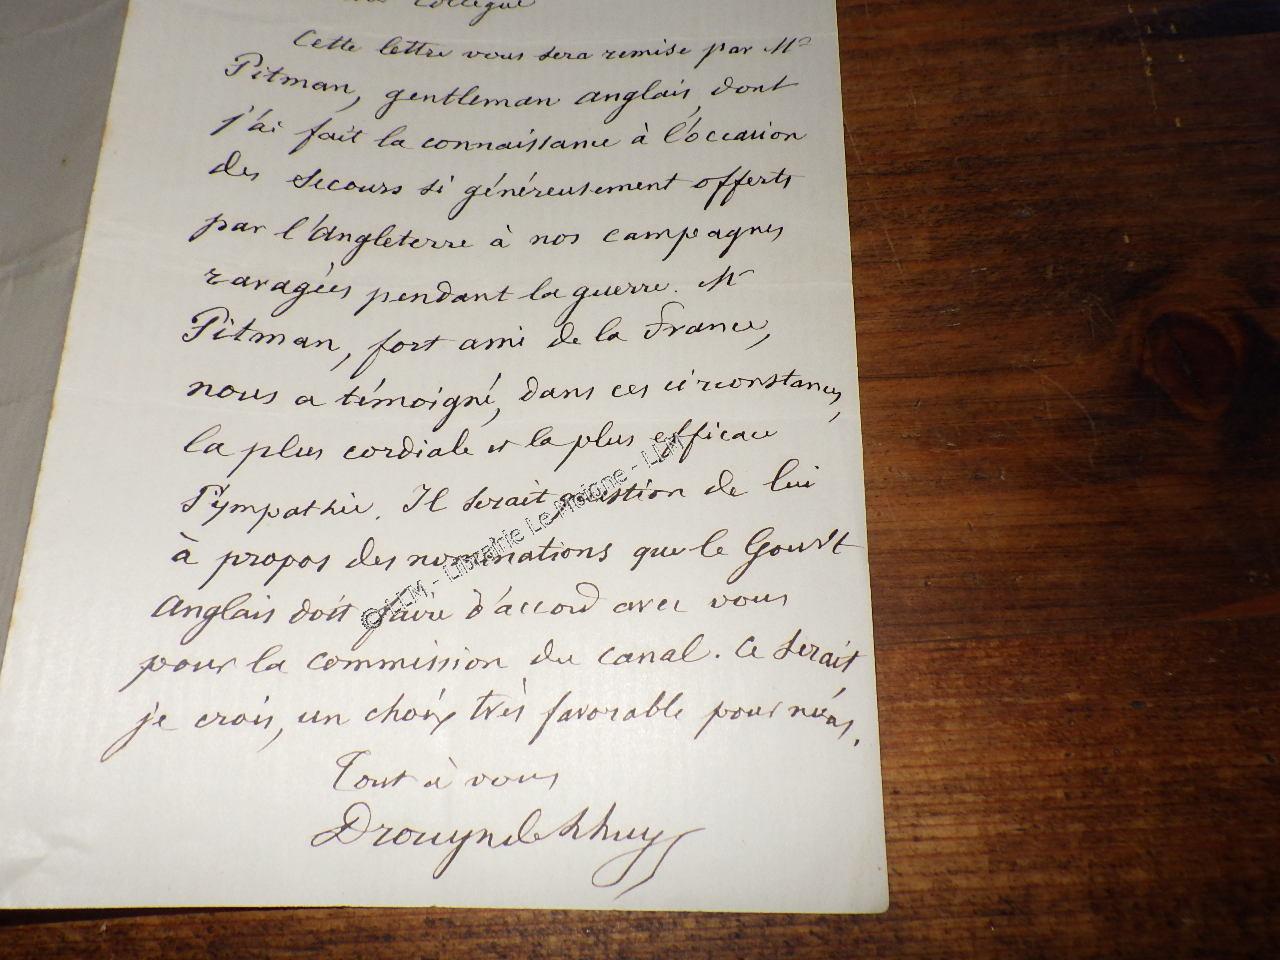 Collègue
Cette lettre vous sera remise par Mr
Pitman, gentleman anglais, dont
j'ai fait la connaissance à l'occasion
des secours si généreusement offerts
par l'Angleterre à nos campagnes
ravagées pendant la guerre. Mr
Pitman, fort ami de la France,
nous a témoigné, dans ces circonstances,
la plus cordiale et la plus efficace
sympathie. Il serait question de lui
à propos des nominations que le Gouvt
Anglais doit faire d'accord avec vous
pour la commission du canal. Ce serait
je crois, un choix très favorable pour nous.
Tout à vous
Drouyn de Lhuys
© LLM, - Librairie Le Moigne - LLM